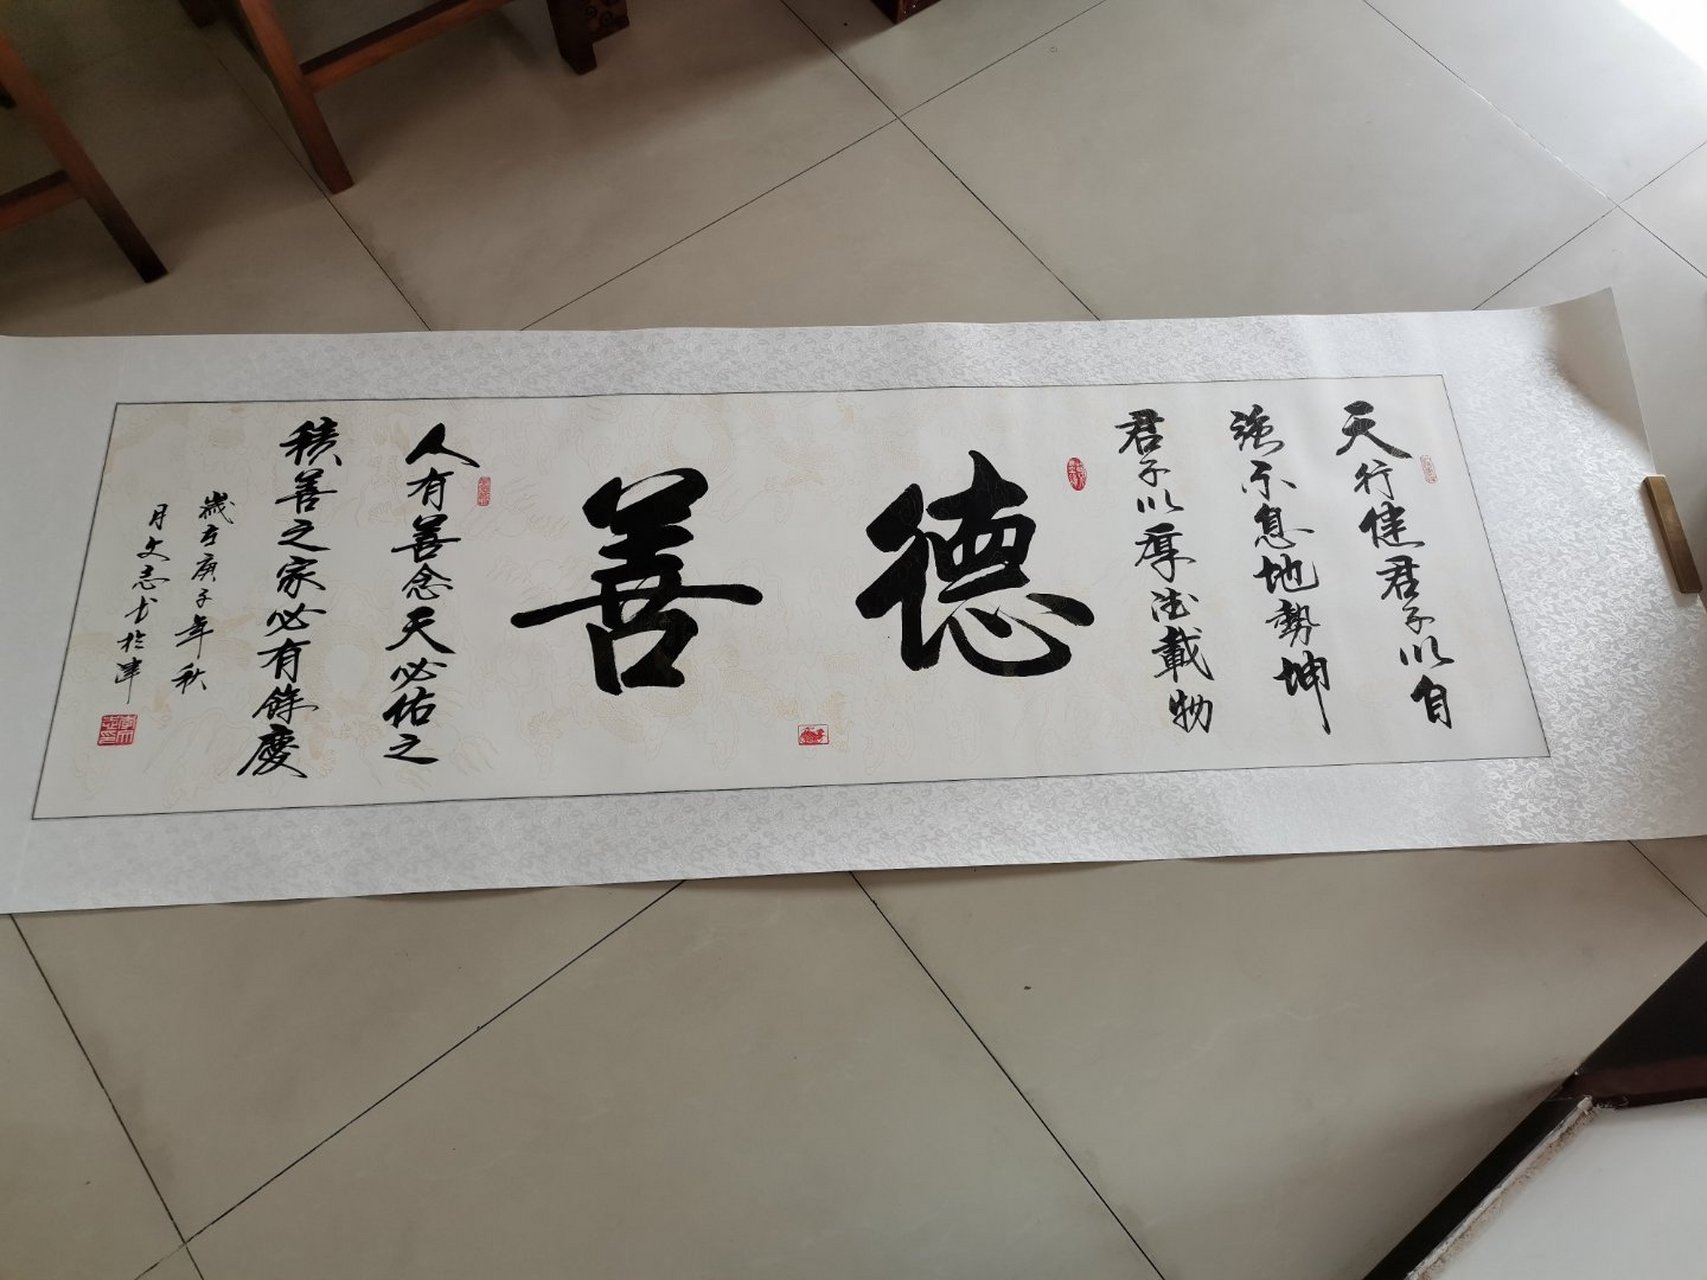 天行健君子以自
強不息地勢坤
君子以厚德載物
德
善
人有善念天必佑之
積善之家必有餘慶
歲在庚子年秋
月文志书於津